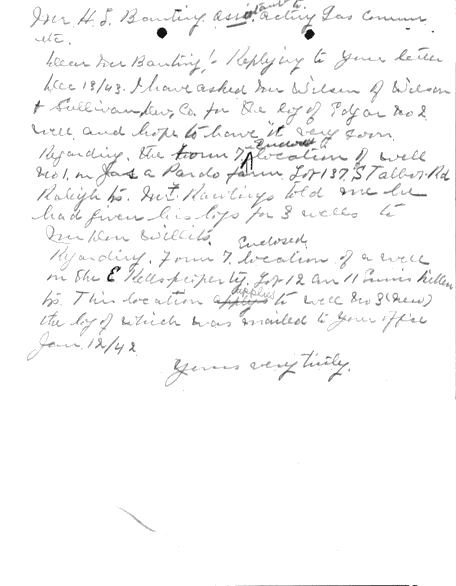 Mr H. S. Banting. assistant to acting Gas Comm
etc.
Dear Mr Banting:- Replying to your letter
Dec 13/43. I have asked Mr Wilson of Wilson
& Sullivan Dev. Co. for the log of Edgar No 2
well and hope to have it very soon
Regarding the Form 7, Enclosed location of well
No 1. on Jas a Pardo farm. Lot 137. S Talbot Rd
Raleigh tp. Mr Rawlings told me he
had given his logs for 3 wells to
Mr Willits.
Regarding. Form 7. Enclosed location of a well
on the E property. Lot 12
tp. This location applies to well No 3 (new)
the log of which was mailed to your office
Jan. 12/42
Yours very truly.